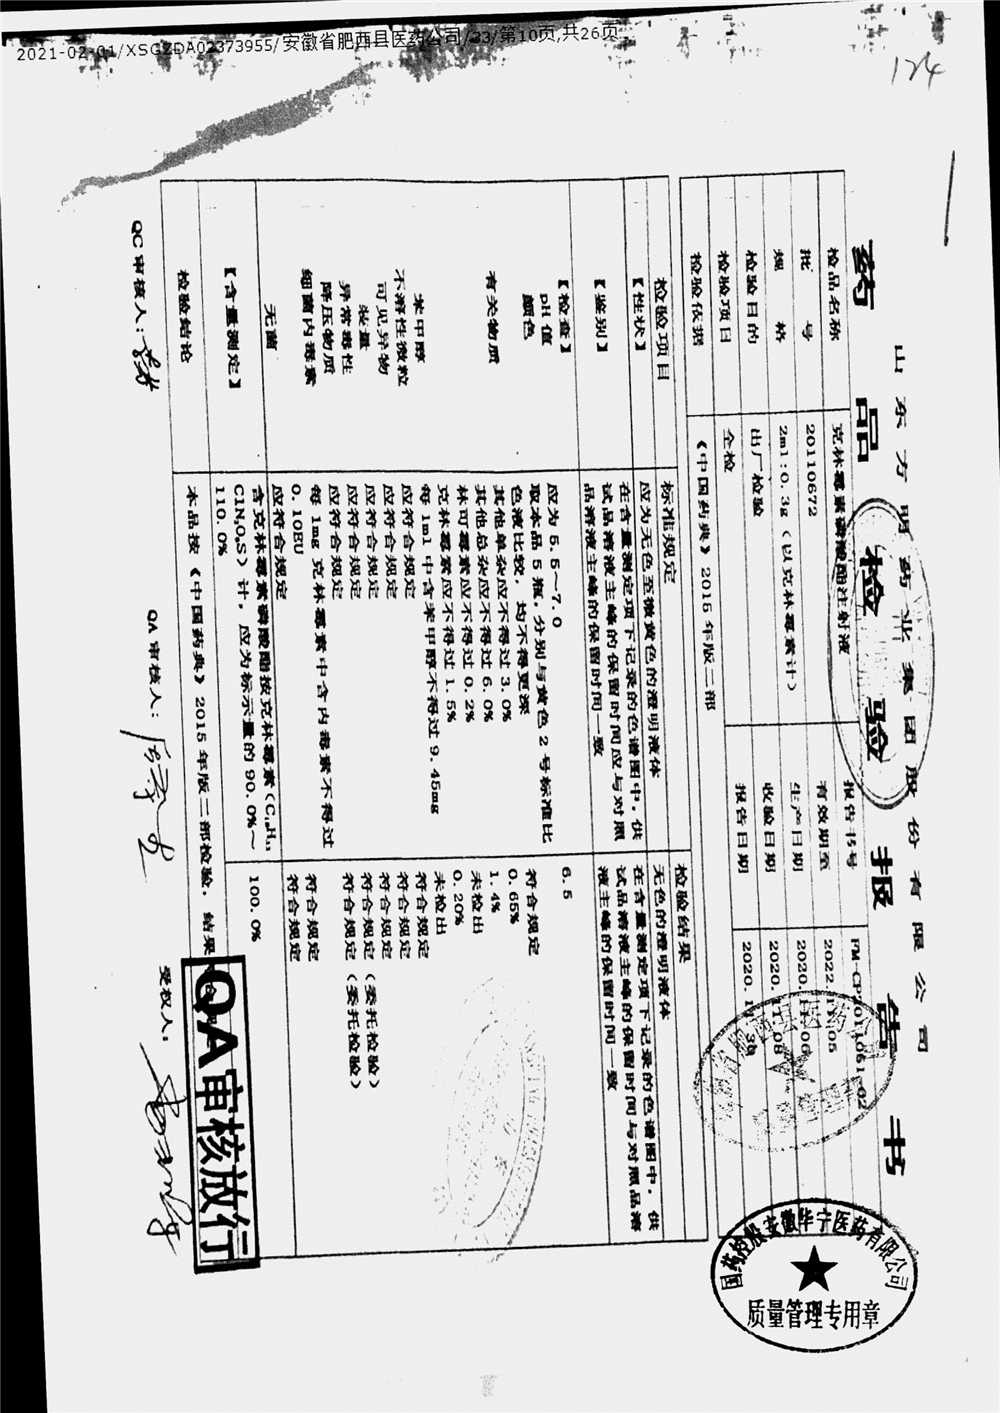 2021-02-01/XSGZDA02373955/安徽省肥西县医药公司/23/第10页,共26页
124
山东方明药业集团股份有限公司
药品检验报告书
检品名称 克林霉素磷酸酯注射液 报告书号
批号 20110672 有效期至 2022.11.05
规格 2ml:0.3g（以克林霉素计） 生产日期 2020.11.06
检验目的 出厂检验 收验日期 2020.11.08
检验项目 全检 报告日期
检验依据 《中国药典》2015年版二部
检验项目 标准规定 检验结果
【性状】 应为无色至微黄色的澄明液体 无色的澄明液体
【鉴别】 在含量测定项下记录的色谱图中，供试品溶液主峰的保留时间应与对照品溶液主峰的保留时间一致 在含量测定项下记录的色谱图中，供试品溶液主峰的保留时间与对照品溶液主峰的保留时间一致
【检查】
pH值 应为5.5～7.0 6.5
颜色 取本品5瓶，分别与黄色2号标准比色液比较，均不得更深 符合规定
有关物质 其他单杂应不得过3.0% 0.65%
其他总杂应不得过6.0% 1.4%
林可霉素应不得过0.2% 未检出
克林霉素应不得过1.5% 0.20%
苯甲醇 每1ml中含苯甲醇不得过9.45mg 未检出
不溶性微粒 应符合规定 符合规定
可见异物 应符合规定 符合规定
装量 应符合规定 符合规定
异常毒性 应符合规定 符合规定（委托检验）
降压物质 应符合规定 符合规定（委托检验）
细菌内毒素 每1mg克林霉素中含内毒素不得过0.10EU 符合规定
无菌 应符合规定 符合规定
【含量测定】 含克林霉素磷酸酯按克林霉素（C₁₈H₃₃ClN₂O₅S）计，应为标示量的90.0%～110.0% 100.0%
检验结论 本品按《中国药典》2015年版二部检验，结果
QC审核人：
QA审核人：
受权人：
QA审核放行
国药控股安徽华宁医药有限公司
质量管理专用章